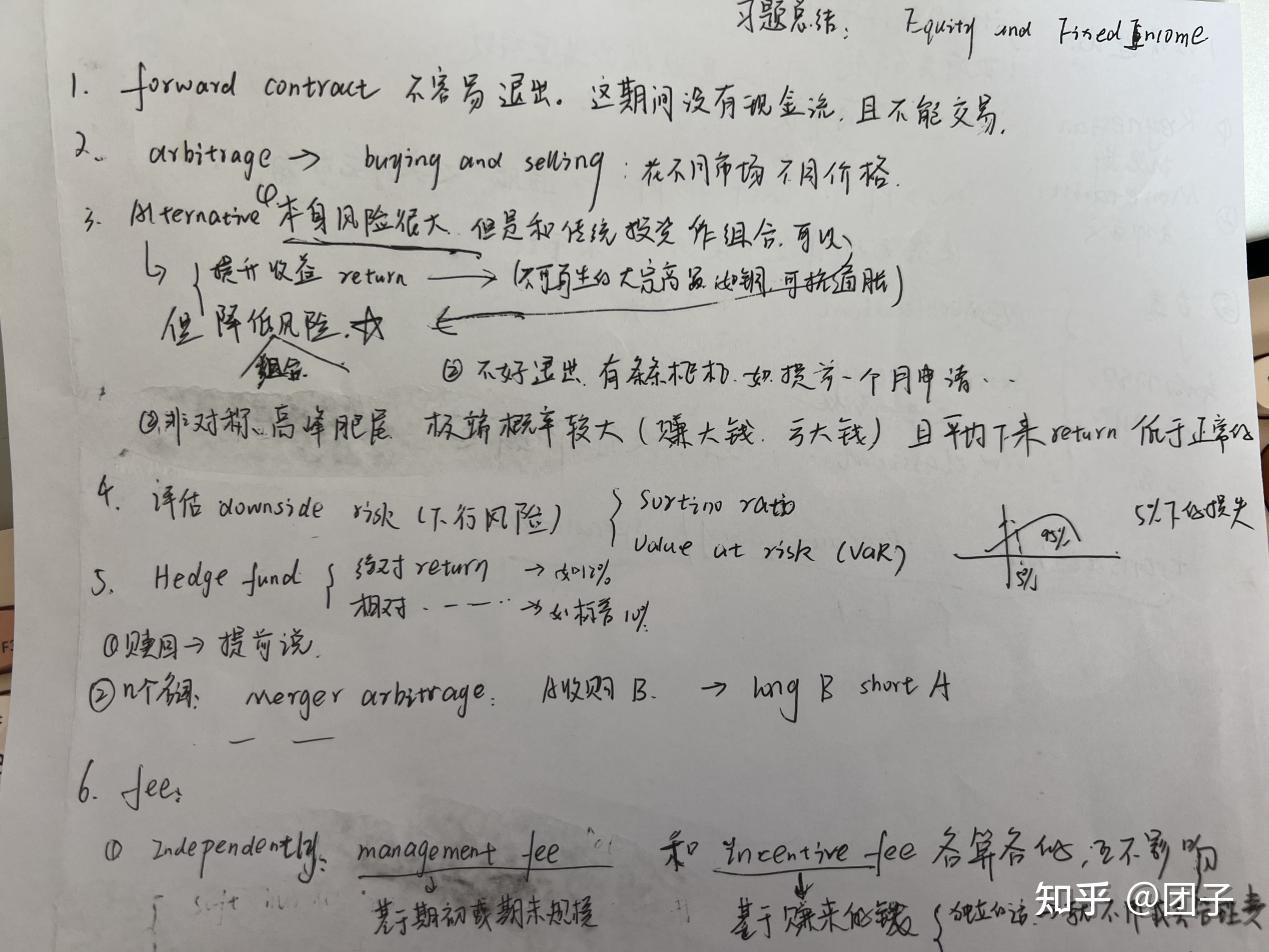 习题总结: Equity and Fixed Income
1. forward contract 不容易退出。这期间没有现金流,且不能交易.
2. arbitrage → buying and selling: 在不同市场不同价格.
3. Alternative ① 本身风险很大 但是和传统投资作组合,可以
提升收益 return → (不可再生的大宗商品 如铜,可抗通胀)
但 降低风险 ☆ ←
组合.
② 不好退出 有条条框框. 如提前一个月申请..
③ 非对称、高峰肥尾 极端概率较大 (赚大钱. 亏大钱) 且平均下来 return 低于正常的
4. 评估 downside risk (下行风险) { Sortino ratio
Value at risk (VaR) 95% 5% 5%下的损失
5. Hedge fund { 绝对 return → 如12%
相对 → 如标普10%
① 赎回 → 提前说.
② n个名词: merger arbitrage: A收购B. → long B short A
6. fee:
① Independently: management fee 和 incentive fee 各算各的,互不影响
基于期初或期末规模 基于赚来的钱 { 独立的话
知乎 @团子